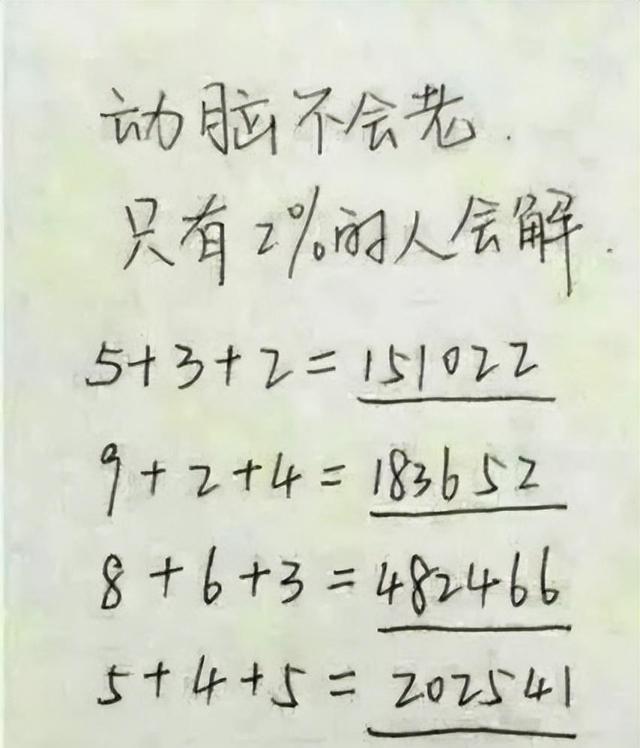 动脑不会老.
只有2%的人会解.
5+3+2=151022
9+2+4=183652
8+6+3=482466
5+4+5=202541